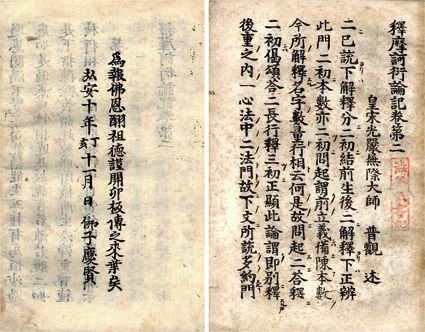 釋摩訶衍論記卷第二
皇宋光嚴無際大師 普觀 述
二已說下解釋分二初結前生後二解釋下正辨
此門二初本數亦二初問起謂前立義備陳本數
今所解釋名字數量行相云何是故問起二荅釋
二初偈頌荅二長行釋三初正顯此論謂即別釋
後重之內一心法中二法門故下文所說多約門
爲報佛恩酬祖德謹開印板傳之來葉矣
弘安十年丁亥十一月 日 佛子慶賢